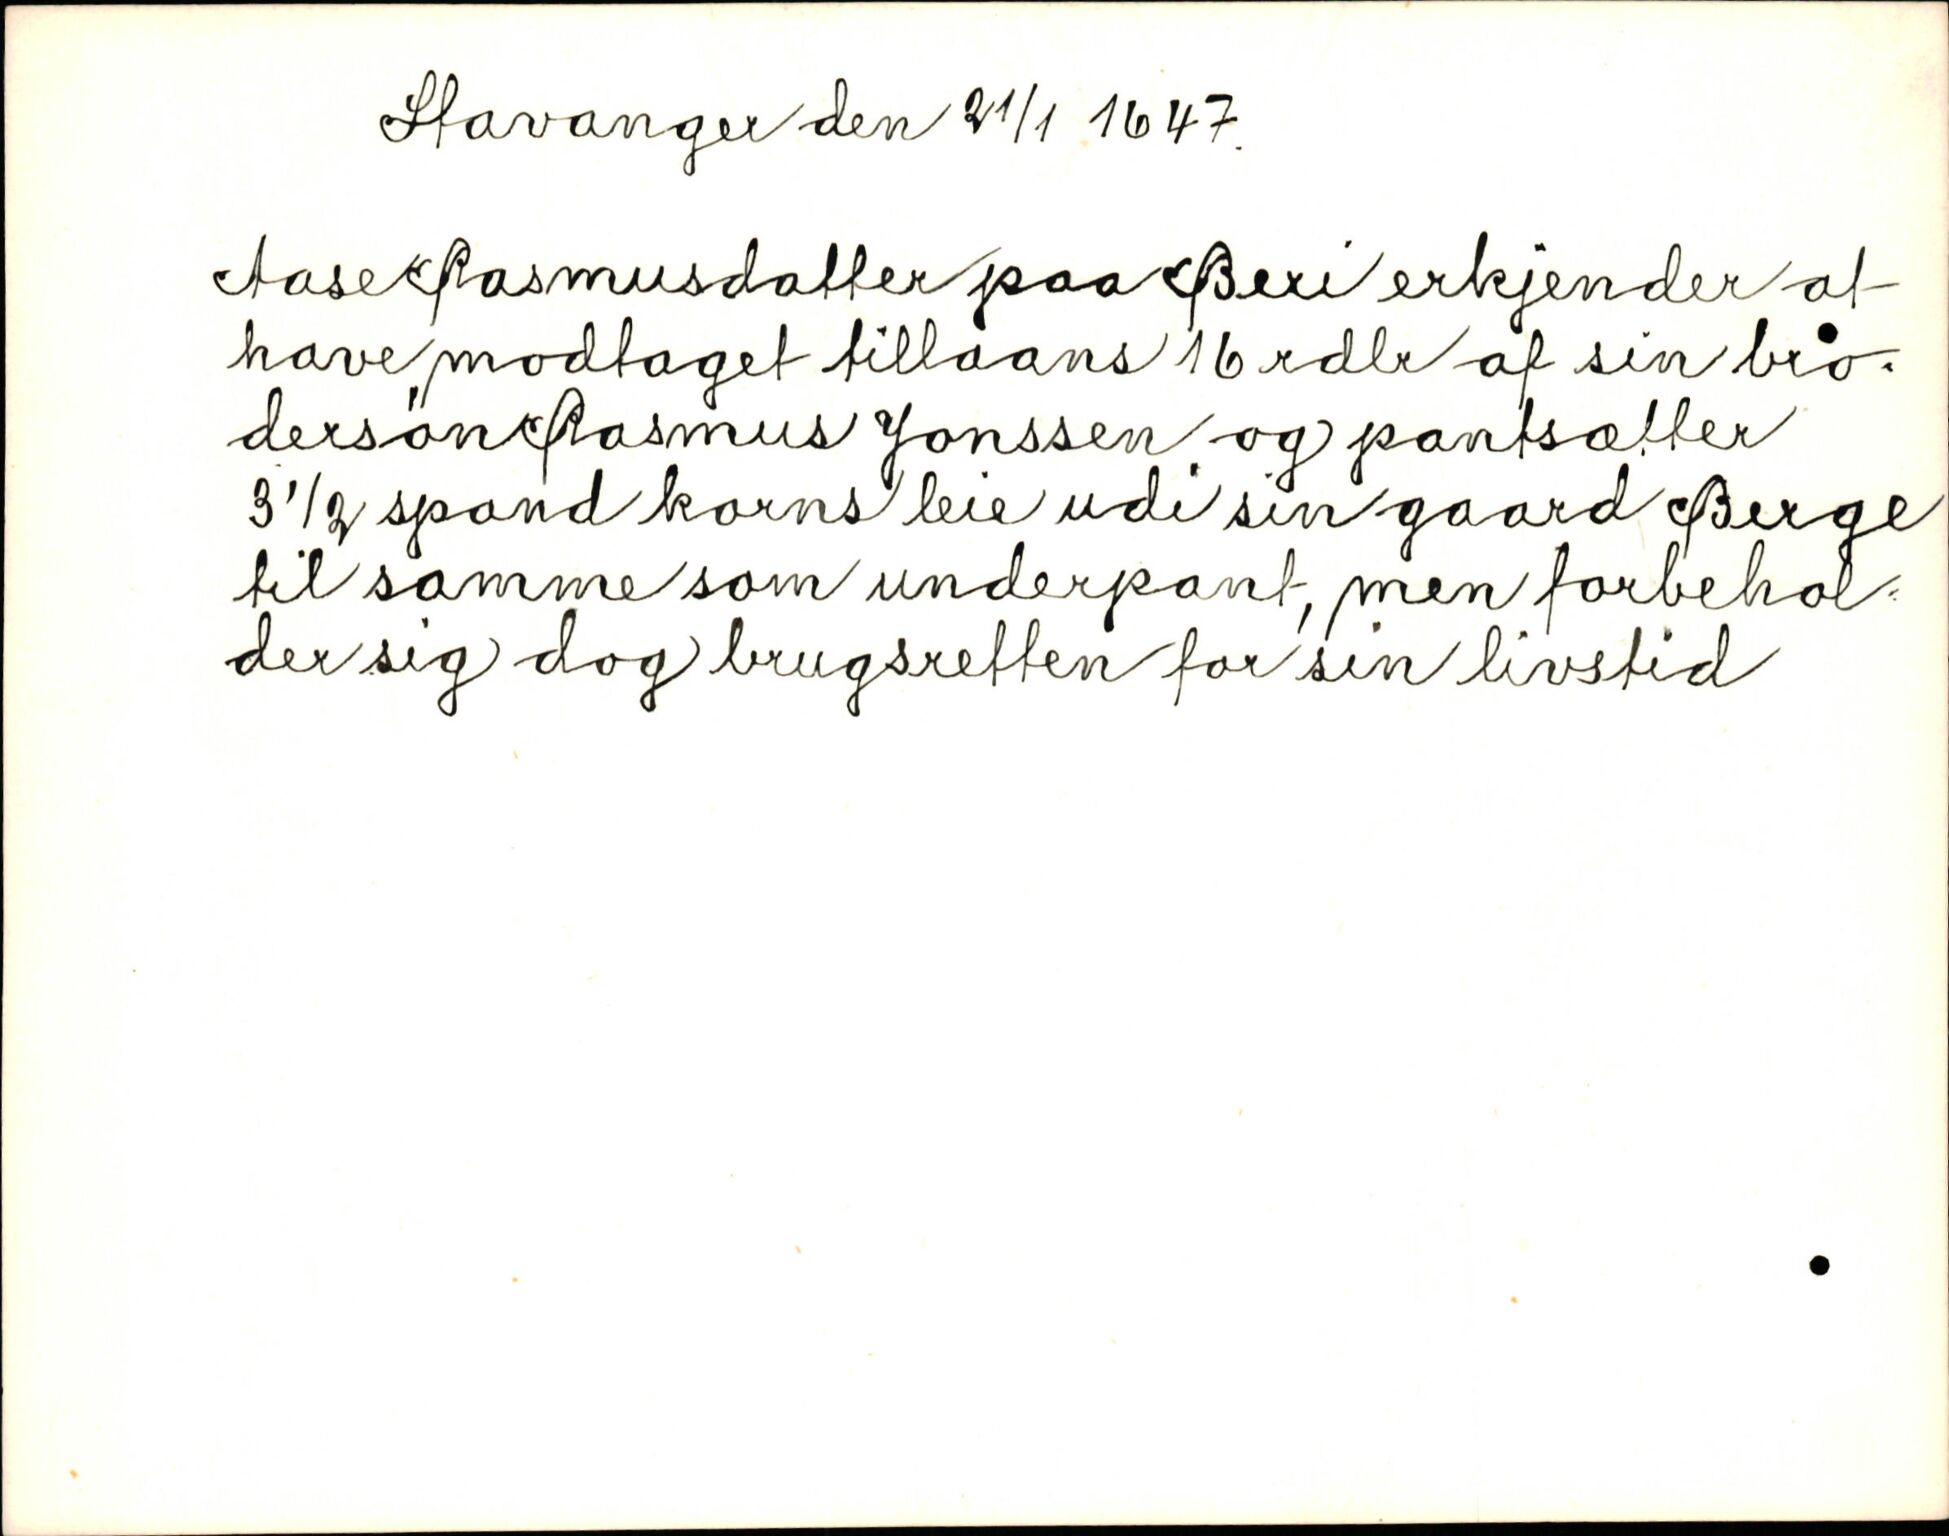 Stavanger den 21/1 1647.
Aase Rasmusdatter paa Beri erkjender at
have modtaget tillaans 16 rdlr af sin brö-
dersön Rasmus Jonssen og pantsætter
3 1/2 spand korns leie udi sin gaard Berge
til samme som underpant, men forbehol-
der sig dog brugsretten for sin livstid